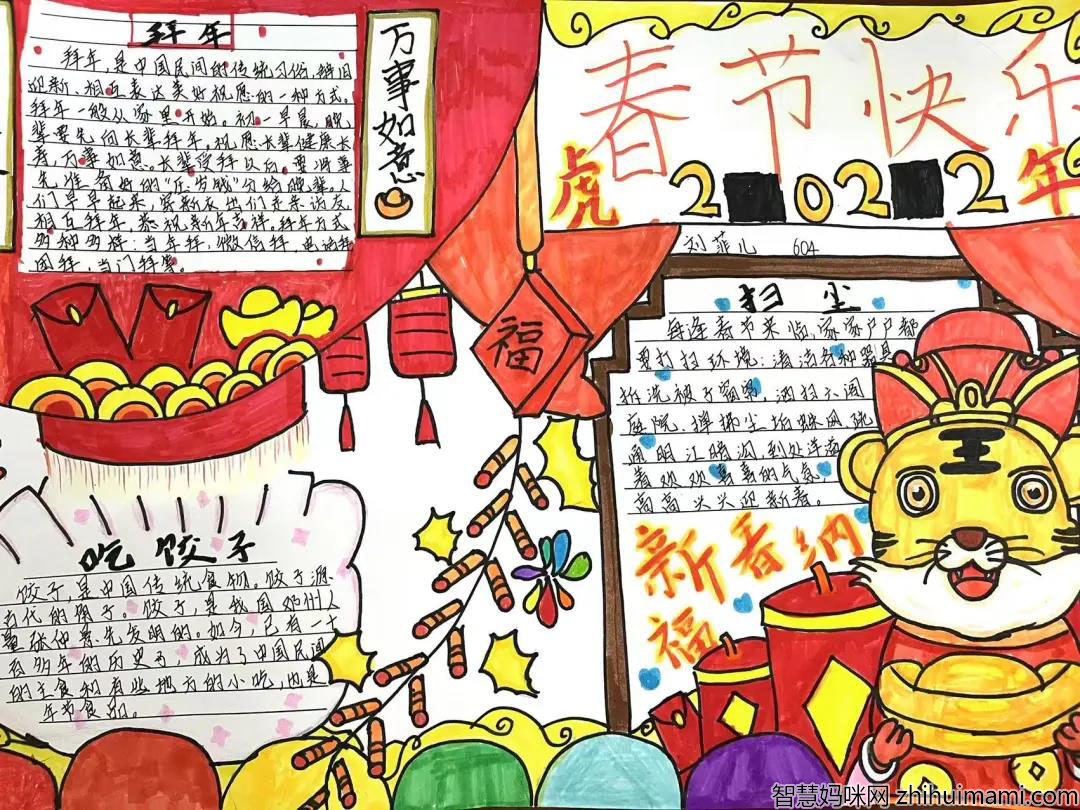 拜年
拜年,是中国民间的传统习俗,辞旧
迎新、相互表达美好祝愿的一种方式。
拜年一般从家里开始。初一早晨,晚
辈要先向长辈拜年,祝愿长辈健康长
寿,万事如意。长辈受拜以后,要将事
先准备好的“压岁钱”分给晚辈。人
们早早起来,穿新衣出们走亲访友
相互拜年,恭祝新年吉祥。拜年方式
多种多样:当年拜,微信拜,电话拜
团拜,当门拜等。
万事如意
春节快乐
虎2022年
刘菲儿 604
福
扫尘
每逢春节来临,家家户户都
要打扫环境;清洁各种器具
拆洗被子窗帘,洒扫六闾
庭院,掸拂尘垢蛛网,疏
通明沟暗沟,到处洋溢
着欢欢喜喜的气氛,
高高兴兴迎新春。
新春纳
福
王
吃饺子
饺子,是中国传统食物。饺子源
古代的角子。饺子,是我国邓州人
张仲景先发明的。如今,已有一千
百多年的历史了,成为了中国民间
的主食和有些地方的小吃,也是
年节食品。
智慧妈咪网 zhihuimami.com